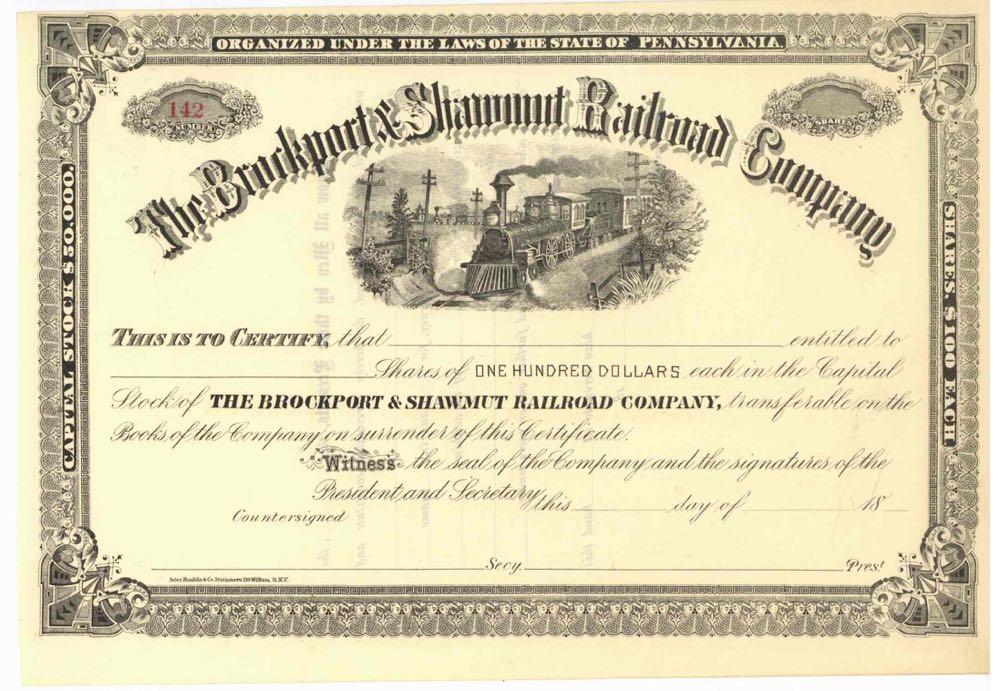 ORGANIZED UNDER THE LAWS OF THE STATE OF PENNSYLVANIA.
142
NUMBER
SHARES
The Brockport & Shawmut Railroad Company
CAPITAL STOCK $50.000.
SHARES, $100 EACH
THIS IS TO CERTIFY, that entitled to
Shares of ONE HUNDRED DOLLARS each in the Capital
Stock of THE BROCKPORT & SHAWMUT RAILROAD COMPANY, transferable on the
Books of the Company on surrender of this Certificate.
Witness the seal of the Company and the signatures of the
President and Secretary this day of 18
Countersigned
Secy. Prest
Hamblin & Co. Stationers 120 William St. N.Y.